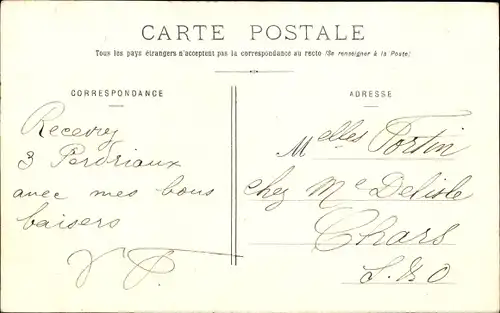 CARTE POSTALE
Tous les pays étrangers n'acceptent pas la correspondance au recto (Se renseigner à la Poste)
CORRESPONDANCE
Recevez
3 Perdriaux
avec mes bons
baisers
ADRESSE
Melles Fortin
chez Me Delisle
Chars
S. & O